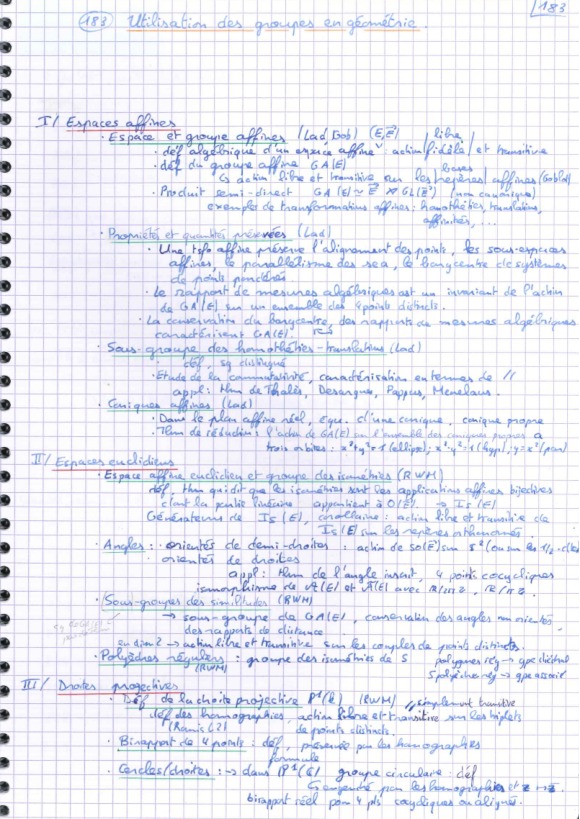 183
(183) Utilisation des groupes en géométrie.
I/ Espaces affines
· Espace et groupe affines (Lad, Gob) (E, E⃗) libre
· déf algébrique d'un espace affine action fidèle et transitive
· déf du groupe affine GA(E) bases
↳ action libre et transitive sur les repères affines (Goblot)
· Produit semi-direct GA(E) ≃ E⃗ ⋊ GL(E⃗) (non canonique)
exemples de transformations affines : homothéties, translations,
affinités, ...
· Propriétés et quantités préservées (Lad)
· Une tsfo affine préserve l'alignement des points, les sous-espaces
affines, le parallélisme des sea, le barycentre de systèmes
de points pondérés.
· Le rapport de mesures algébriques est un invariant de l'action
de GA(E) sur un ensemble des 4 points distincts.
· La conservation du barycentre, des rapports de mesures algébriques
caractérisent GA(E).
· Sous-groupe des homothéties-translations (Lad)
· déf, sg distingué
· Etude de la commutativité, caractérisation en termes de //
appl : thm de Thalès, Desargues, Pappus, Menelaus.
· Coniques affines (Lad)
· Dans le plan affine réel, équ. d'une conique, conique propre
· Thm de réduction : l'action de GA(E) sur l'ensemble des coniques propres a
trois orbites : x²+y²=1 (ellipse) ; x²-y²=1 (hyp) ; y=x² (par)
II/ Espaces euclidiens
· Espace affine euclidien et groupe des isométries (RWH)
déf, thm qui dit que les isométries sont les applications affines bijectives
dont la partie linéaire appartient à O(E⃗). → Is(E)
Générateurs de Is(E), corollaire : action libre et transitive de
Is(E) sur les repères orthonormés.
· Angles : · orientés de demi-droites : action de SO(E) sur S¹ (ou sur les 1/2-dtes)
· orientés de droites
appl : thm de l'angle inscrit, 4 points cocycliques
isomorphisme de A(E) et A(E) avec R/2πZ, R/πZ
· Sous-groupes des similitudes (RWH)
→ sous-groupe de GA(E), conservation des angles non orientés,
des rapports de distance
en dim 2 → action libre et transitive sur les couples de points distincts.
· Polyèdres réguliers : groupe des isométries de S polygones rég → gpe diédral
(RWH) 5 polyèdres rég → gpe associé
III/ Droites projectives
· Déf de la droite projective P¹(k) (RWH) simplement transitive
déf des homographies, action libre et transitive sur les triplets
(Ramis [2]) de points distincts.
· Birapport de 4 points : déf, préservé par les homographies
formule
· Cercles/droites : → dans P¹(C) groupe circulaire : déf
↳ engendré par les homographies et z ↦ z̄.
birapport réel pour 4 pts cocycliques ou alignés.